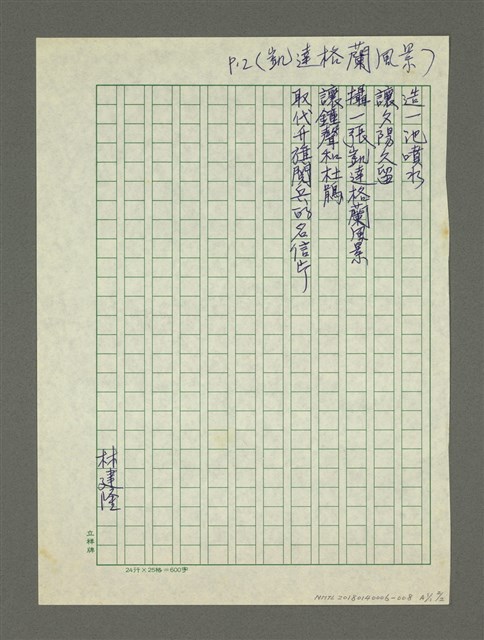 P.2(凱達格蘭風景)
造一池噴水
讓夕陽久留
攝一張凱達格蘭風景
讓鐘聲和杜鵑
取代升旗閱兵的名信片
林建隆
立禕牌
24行×25格=600字
NMTL20180140006-008